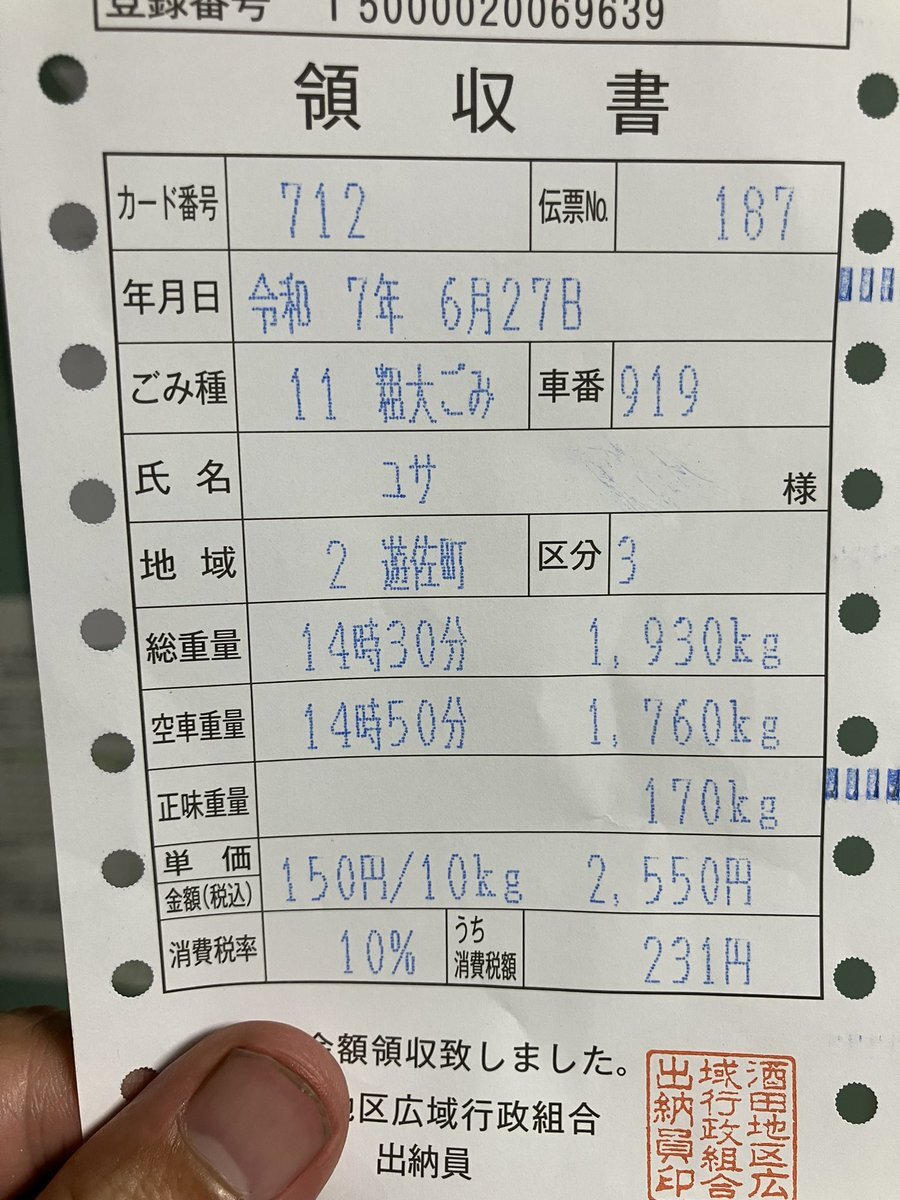 登録番号 T5000020069639
領収書
カード番号 712 伝票No. 187
年月日 令和 7年 6月27日
ごみ種 11 粗大ごみ 車番 919
氏名 ユサ 様
地域 2 遊佐町 区分 3
総重量 14時30分 1,930kg
空車重量 14時50分 1,760kg
正味重量 170kg
単価 150円/10kg 2,550円
金額(税込)
消費税率 10% うち消費税額 231円
金額領収致しました。
地区広域行政組合
出納員
酒田地区広
域行政組合
出納員印